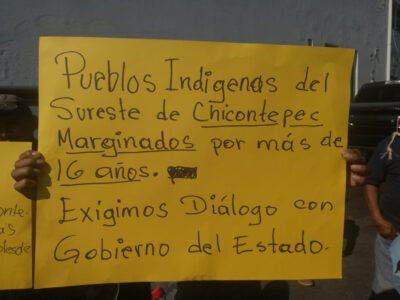 Pueblos Indigenas del
Sureste de Chicontepec
Marginados por más de
16 años.
Exigimos Diálogo con
Gobierno del Estado.
onte.
as
desde